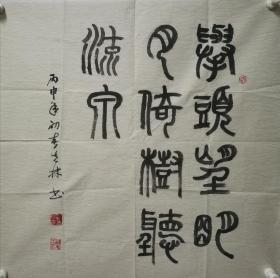 舉頭望明
月倚樹聽
流泉
丙申年初春林书